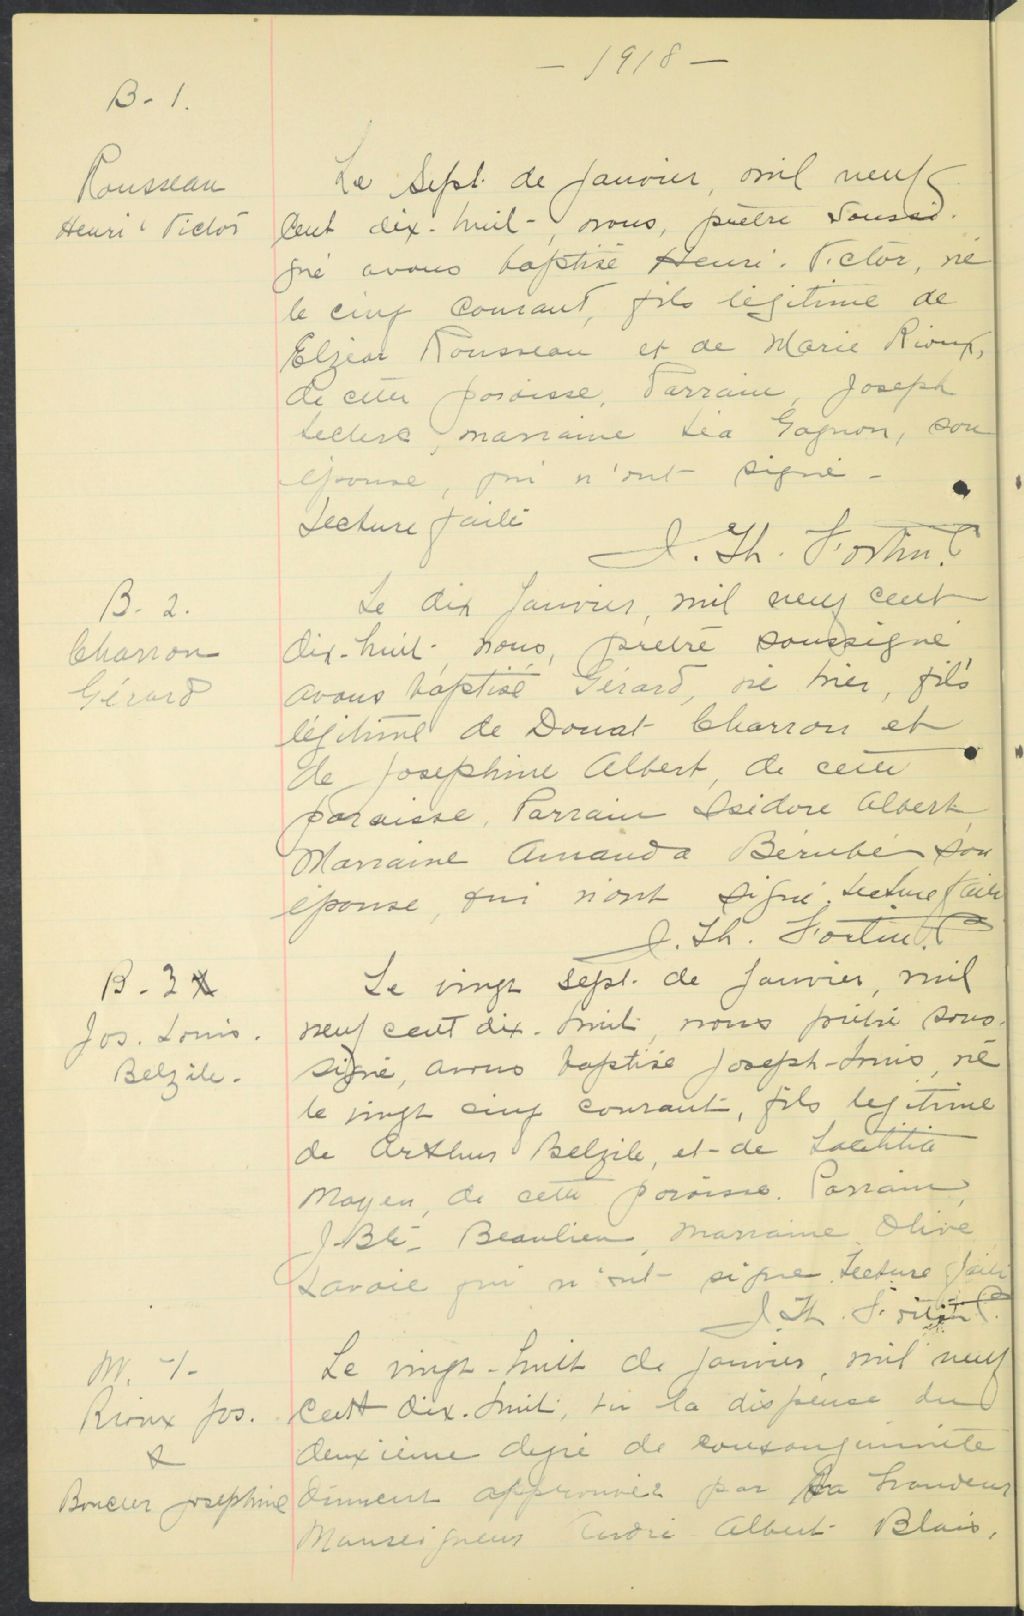 - 1918 -
B. 1.
Rousseau
Henri Victor
Le Sept de janvier, mil neuf
cent dix-huit, nous, prêtre soussi-
gné avons baptisé Henri-Victor, né
le cinq courant, fils légitime de
Elzéar Rousseau et de Marie Rioux,
de cette paroisse. Parrain, Joseph
Leclerc, marraine Léa Gagnon, son
épouse, qui n'ont signé -
Lecture faite
J. Th. Fortin P.
B. 2.
Charron
Gérard
Le dix Janvier, mil neuf cent
dix-huit, nous, prêtre soussigné
avons baptisé Gérard, né hier, fils
légitime de Donat Charron et
de Josephine Albert, de cette
paroisse. Parrain Isidore Albert
Marraine Amanda Bérubé son
épouse, qui n'ont signé. Lecture faite
J. Th. Fortin P.
B - 3
Jos. Louis.
Belzile.
Le vingt sept de Janvier, mil
neuf cent dix-huit, nous prêtre sous-
signé, avons baptisé Joseph-Louis, né
le vingt cinq courant, fils légitime
de Arthur Belzile, et de Laetitia
Moyen, de cette paroisse. Parrain,
J-Bte Beaulieu, marraine Olive
Savoie qui n'ont signé. Lecture faite
J. Th. Fortin P.
M. -1-
Rioux Jos.
&
Boucher Josephine
Le vingt-huit de janvier, mil neuf
cent dix-huit, vu la dispense du
deuxième degré de consanguinité
dûment approuvée par Sa Grandeur
Monseigneur André Albert Blais,